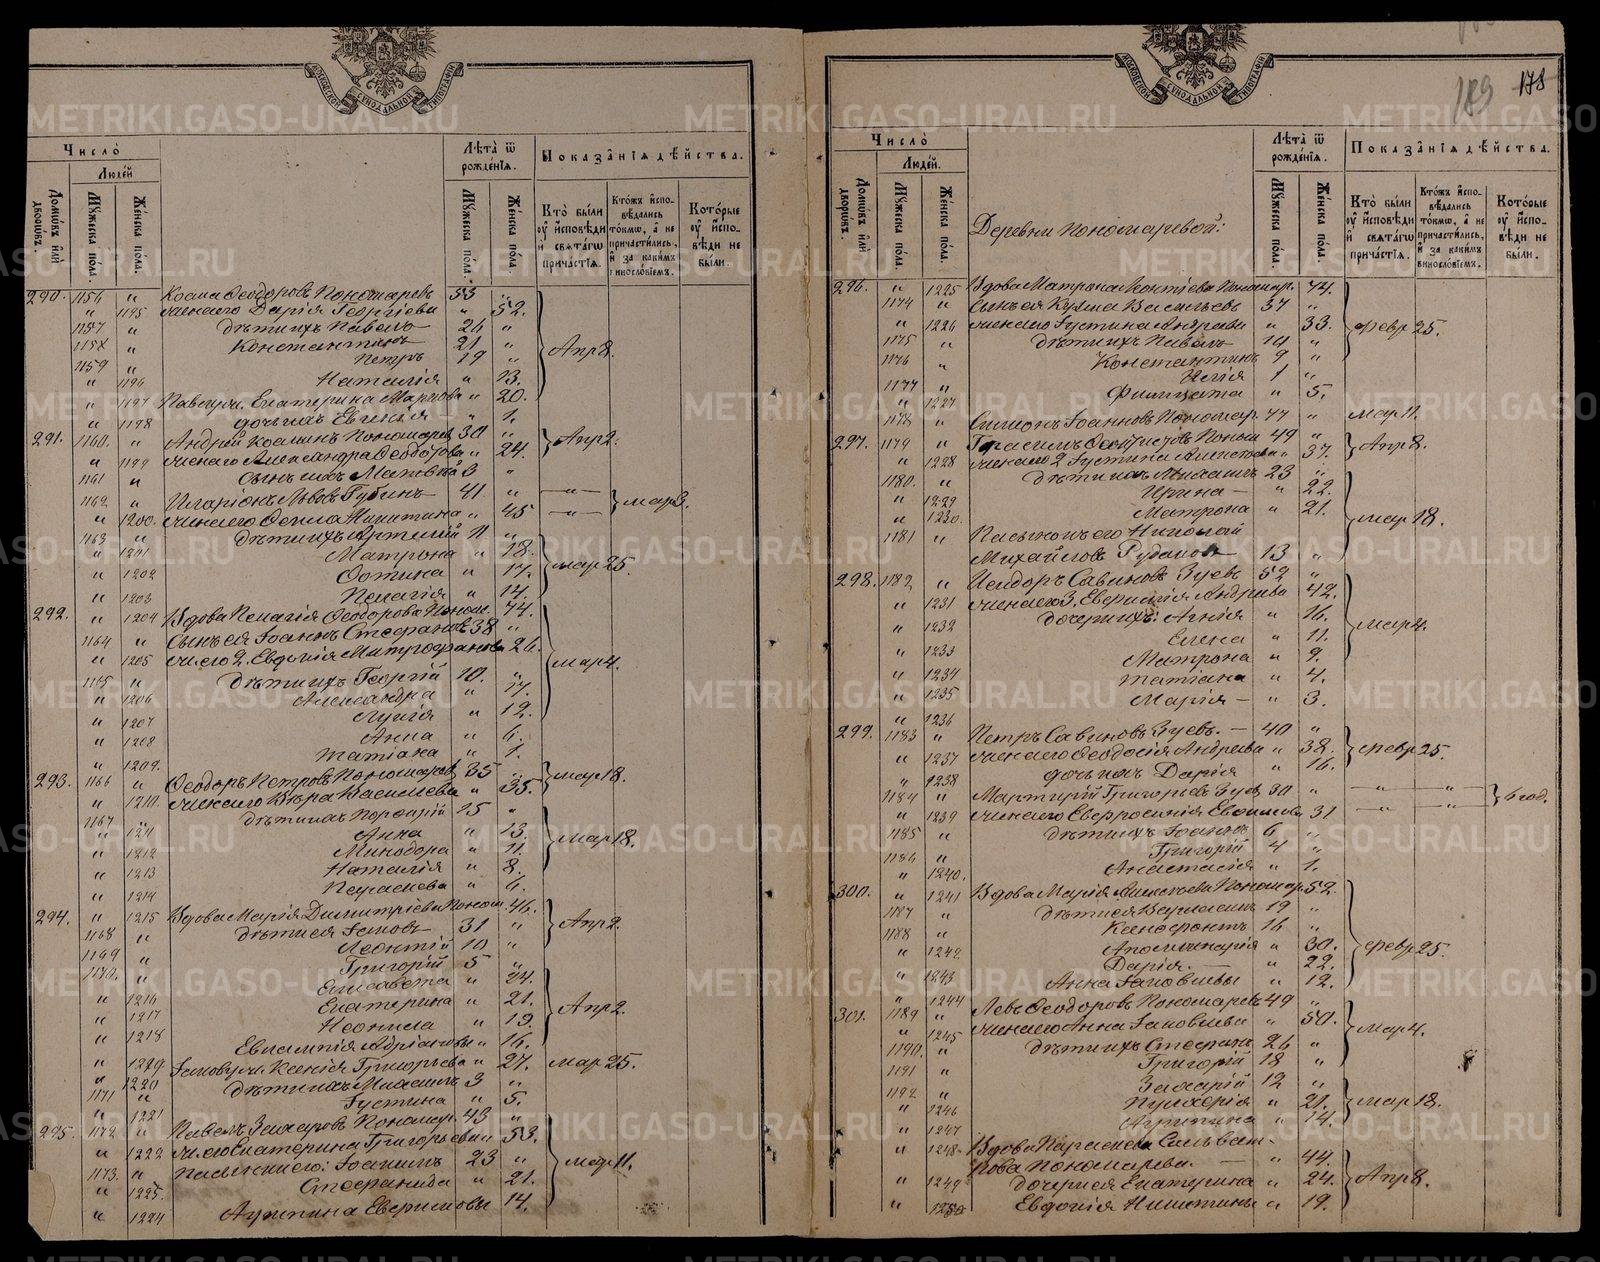 МОСКОВСКОЙ СѴНОДАЛЬНОЙ ТИПОГРАФІИ
Число̀
Домѡ́въ и҆лѝ дворѡ́въ.
Люде́й
Мꙋ́жеска по́ла.
Же́нска по́ла.
Лѣ́та ѿ рожде́нїѧ.
Мꙋ́жеска по́ла.
Же́нска по́ла.
Показа̂нїѧ дѣ́йства.
Кто̀ бы́ли ᲂу҆ и҆сповѣ́ди и҆ свѧта́гѡ прича́стїѧ.
Кто́жъ и҆сповѣ́дались то́кмѡ, а҆ не причасти́лись, и҆ за каки́мъ винослѡ́вїемъ.
Кото́рые ᲂу҆ и҆сповѣ́ди не бы́ли.
290. 1156 " Косма Ѳеодоровъ Пономаревъ 53 "
" 1195 жена его Дарія Георгіева " 52.
1157 " дѣти ихъ Павелъ 26 "
1158 " Константинъ 21 " Апр 8.
1159 " Петръ 19 "
" 1196 Наталія " 13.
" 1197 Павлуи. Екатерина Маркова " 20.
" 1198 дочь ихъ Евгенія " 1.
291. 1160. " Андрей Косминъ Пономарев 30 " Апр 2.
" 1199 жена его Александра Ѳеодотова " 24.
1161 " сынъ ихъ Матѳей 3 "
1162 " Иларіонъ Львовъ Губинъ 41 " —"— мар 3.
" 1200. жена его Ѳекла Никитина " 45 —"—
1163 " дѣти ихъ Артемій 11 "
" 1201 Матрона " 18. мар 25.
" 1202 Фотина " 17.
" 1203 Пелагія " 14.
292. " 1204 Вдова Пелагія Ѳеодорова Поном. 74.
1164 " Сынъ ея Іоаннъ Стефановъ 38 "
" 1205 ж. его 2. Евдокія Митрофанова 26. мар 4.
1165 " дѣти ихъ Георгій 10. "
" 1206 Александра " 17.
" 1207 Лукія " 12.
" 1208 Анна " 6.
" 1209. Татіана " 1.
293. 1166 " Ѳеодоръ Петровъ Пономарев 35 " мар 18.
" 1210. жена его Вѣра Василіева " 35.
1167 " дѣти ихъ Порфирій 15 "
" 1211 Анна " 13. мар 18.
" 1212 Минодора " 11.
" 1213 Наталія " 8.
" 1214 Параскева " 6.
294. " 1215 Вдова Марія Димитріева Поном 46.
1168 " дѣти ея Іаковъ 31 " Апр 2.
1169 " Леонтій 10 "
1170. " Григорій 5 "
" 1216 Елисавета " 24.
" 1217 Екатерина " 21. Апр 2.
" 1218 Неонила " 19.
Евлампія Адріановы " 16.
" 1219 Іакову ж. Ксенія Григорьева " 27. мар 25.
" 1220 дѣти ихъ Михаилъ 3 "
1171 " Іустина " 5.
" 1221 Павелъ Захаровъ Пономар. 43 "
295. 1172 " ж. его Екатерина Григорьева " 53.
" 1222 Пасынки его: Іоакимъ 23 " мар 11.
1173. " Стефанида " 21.
" 1223.
" 1224 Агрипина Еверисмовы 14.
189 178
МОСКОВСКОЙ СѴНОДАЛЬНОЙ ТИПОГРАФІИ
Число̀
Домѡ́въ и҆лѝ дворѡ́въ.
Люде́й.
Мꙋ́жеска по́ла.
Же́нска по́ла.
Деревни Пономаревой:
Лѣ́та ѿ рожде́нїѧ.
Мꙋ́жеска по́ла.
Же́нска по́ла.
Показа̂нїѧ дѣ́йства.
Кто̀ бы́ли ᲂу҆ и҆сповѣ́ди и҆ свѧта́гѡ прича́стїѧ.
Кто́жъ и҆сповѣ́дались то́кмѡ, а҆ не причасти́лись, и҆ за каки́мъ винослѡ́вїемъ.
Кото́рые ᲂу҆ и҆сповѣ́ди не бы́ли.
296. " 1225 Вдова Матрона Контіева Пономар. 74.
1174 " Сынъ ея Кузма Васильевъ 37 "
" 1226 жена его Іустина Андреева " 33. февр 25.
1175 " дѣти ихъ Павелъ 14 "
1176 " Константинъ 9 "
1177 " Илія 1 "
" 1227 Филицата " 5.
1178 " Симонъ Іоанновъ Пономар. 47 " мар 11.
297. 1179 " Герасимъ Ѳеоктистовъ Поном 49 " Апр 8.
" 1228 жена его 2 Іустина Алексѣева " 37.
1180. " дѣти ихъ Михаилъ 23 "
" 1229 Ирина — " 22.
" 1230. Матрона " 21. мар 18.
1181 " Пасынокъ его Николай
Михайловъ Рудаковъ 13 "
298. 1182 " Исидоръ Савиновъ Зуевъ 52 "
" 1231 жена его 3. Евфимія Андреева 42.
" 1232 дочери ихъ: Агнія " 16. мар 4.
" 1233 Елена " 11.
Матрона " 9.
" 1234 Татіана " 4.
" 1235 Марія — " 3.
" 1236
299. 1183 " Петръ Савиновъ Зуевъ. — 40 "
" 1237 жена его Ѳеодосія Андреева " 38. февр 25.
" 1238 дочь ихъ Дарія " 16.
1184 " Мартирій Григорьевъ Зуевъ 30 " —"— —"— 6 год.
" 1239 жена его Евфросинія Евѳиміева 31 —"— —"—
1185 " дѣти ихъ Іоаннъ 6 "
1186 " Григорій 4 "
" 1240. Анастасія " 1.
300. " 1241 Вдова Марія Алексѣева Пономар. 52.
1187 " дѣти ея Варлаамъ 19 "
1188 " Ксенофонтъ 16 "
" 1242. Аполлинарія " 30. февр 25.
" 1243 Дарія. — " 22.
Анна Іаковлевы " 12.
" 1244
301. 1189 " Левъ Ѳеодоровъ Пономаревъ 49 "
" 1245 жена его Анна Іаковлева " 50. мар 4.
1190. " дѣти ихъ Стефанъ 26 "
1191 " Григорій 18 "
1192 " Захарій 12 "
" 1246 Пулхерія " 21. мар 18.
" 1247 Агрипина " 14.
" 1248 Вдова Параскева Сильван-
кова Пономарева. — " 44.
" 1249 дочери ея Екатерина " 24. Апр 8.
" 1250 Евдокія Никитины " 19.
METRIKI.GASO-URAL.RU